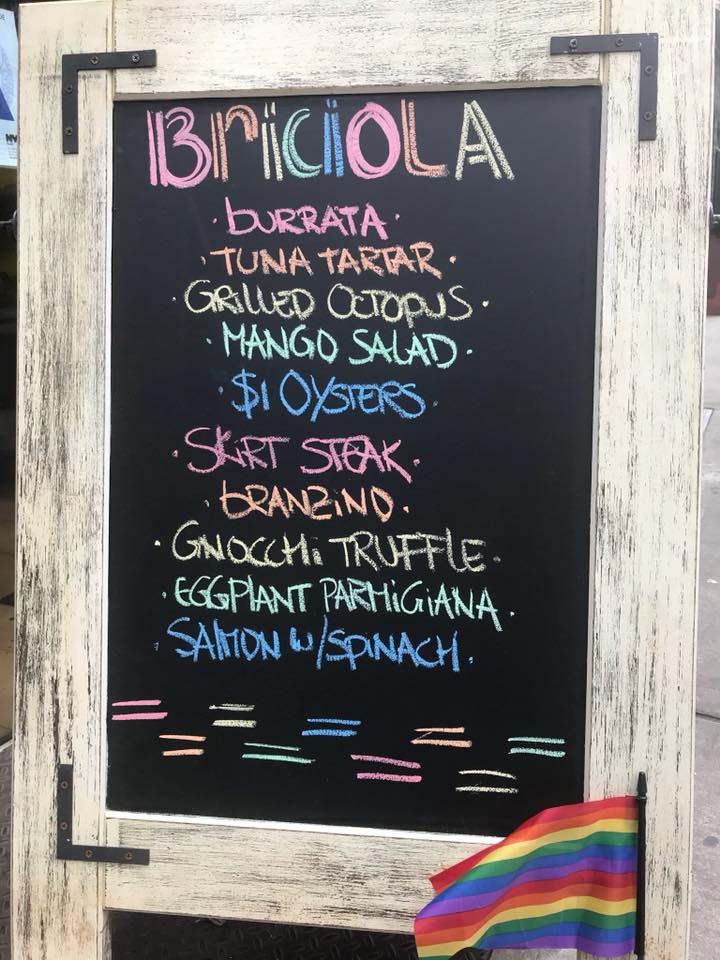 BriciOLA
· bURRATA ·
· TUNA TARTAR ·
· GRILLED OCTOPUS ·
· MANGO SALAD ·
· $1 OYSTERS ·
· SKiRT STEAK ·
· bRANZiNO ·
· GNOCCHi TRUFFLE ·
· EGGPLANT PARMiGiANA ·
· SALMON w/SPINACH ·